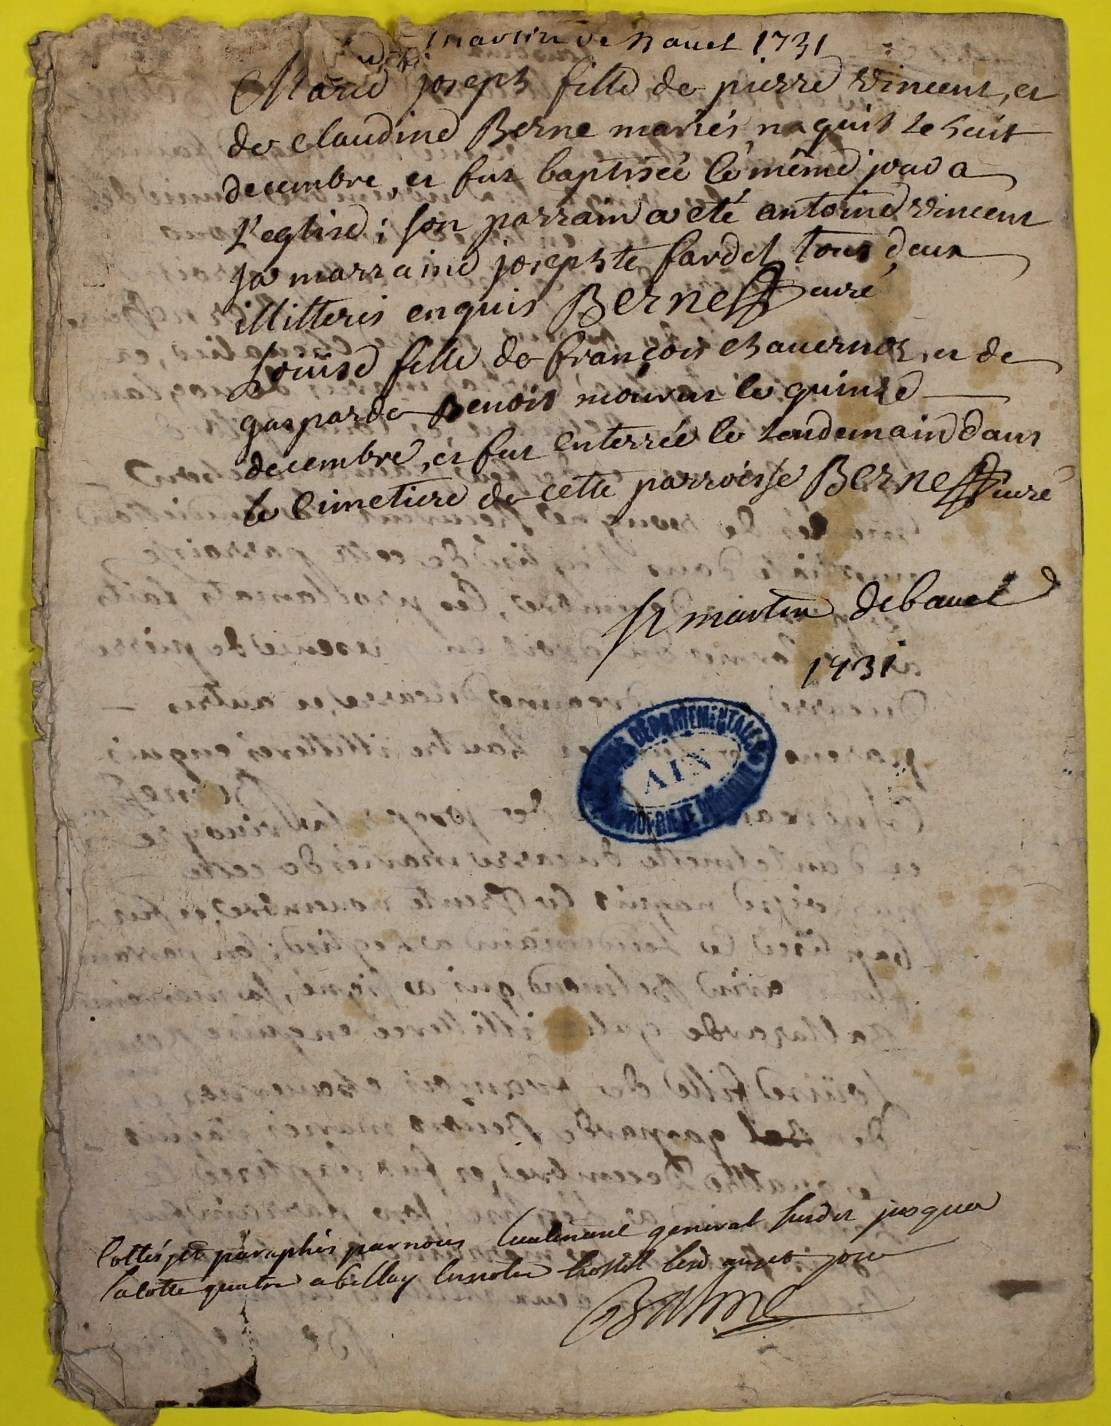 martin de Bauel 1731
Marie joseph fille de pierre vincent, et
de claudine Berne mariés naquit le huit
decembre, et fut baptisée le même jour a
l'eglise ; son parrain a été antoine vincent
sa marraine josephte fardel tous deux
illitteris enquis Berne curé
Louise fille de françois chauernoz et de
gasparde Benoit mourut le quinze
decembre, et fut enterrée le lendemain dans
le cimetiere de cette parroisse Berne curé
St martin de bauel
1731
DÉPARTEMENTALES
AIN
Cottés et paraphés par nous lieutenant general susdit jusques
la cotte quatre a bellay en notre hostel led jour
Balme